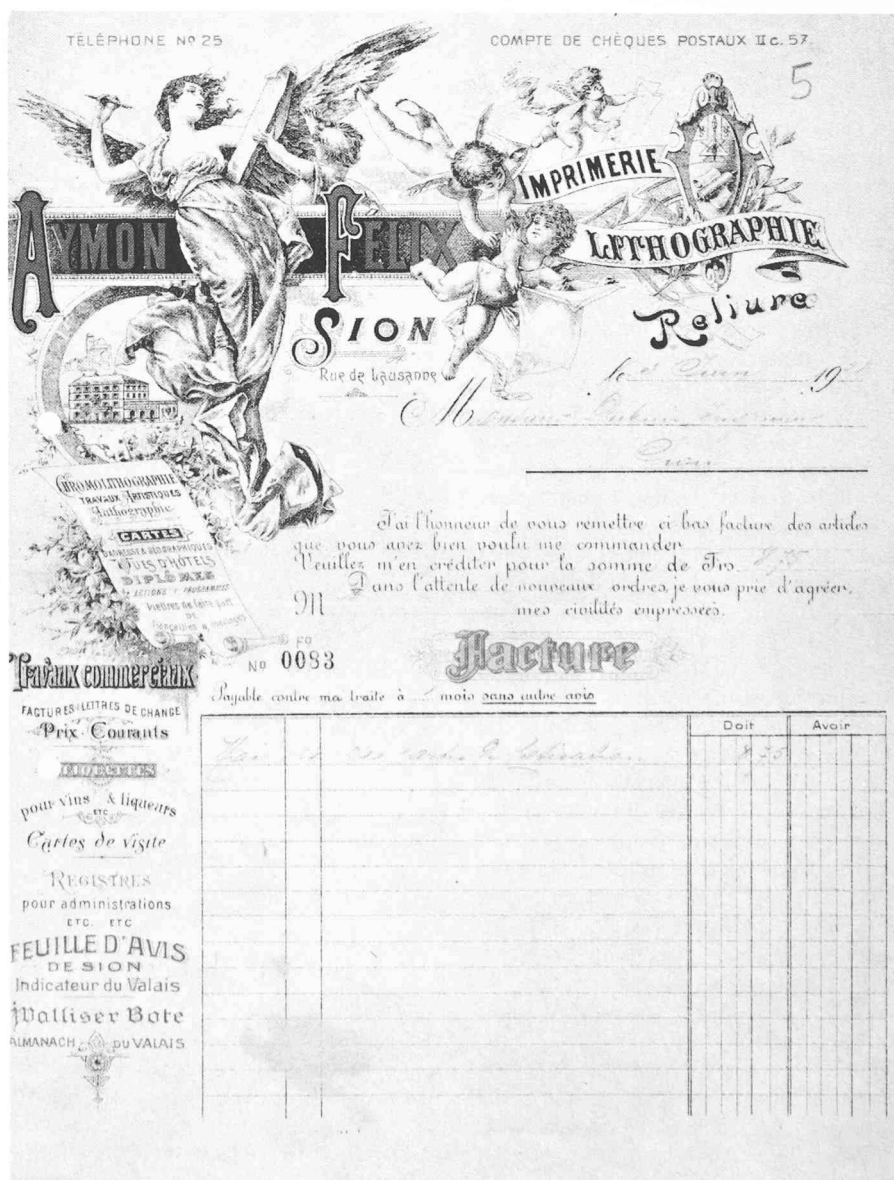 TÉLÉPHONE Nº 25
COMPTE DE CHÈQUES POSTAUX II c. 57.
5
AYMON FELIX
IMPRIMERIE
LITHOGRAPHIE
Reliure
SION
Rue de Lausanne
le Juin 19
M
Sion
CHROMOLITHOGRAPHIE
TRAVAUX ARTISTIQUES
Authographie
CARTES
D'ADRESSE & GEOGRAPHIQUES
VUES D'HÔTELS
DIPLÔMES
ACTIONS PROGRAMMES
Lettres de faire part
DE
fiançailles & mariages
J'ai l'honneur de vous remettre ci bas facture des articles
que vous avez bien voulu me commander
Veuillez m'en créditer pour la somme de Frs. 8,75
Dans l'attente de nouveaux ordres, je vous prie d'agréer,
M mes civilités empressées.
FO
Nº 0083
Facture
Payable contre ma traite à mois sans autre avis
Doit Avoir
8,75
Travaux commerciaux
FACTURES-LETTRES DE CHANGE
Prix-Courants
ETIQUETTES
pour vins & liqueurs
ETC
Cartes de visite
REGISTRES
pour administrations
ETC. ETC
FEUILLE D'AVIS
DE SION
Indicateur du Valais
Walliser Bote
ALMANACH DU VALAIS